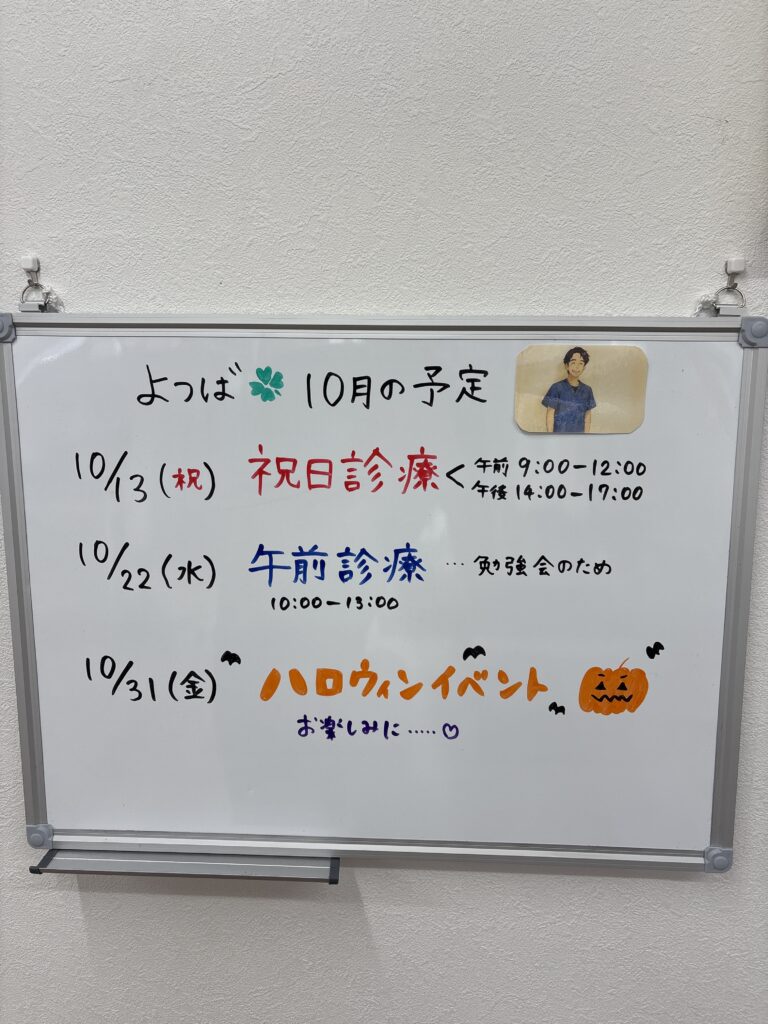 よつば🍀10月の予定
10/13(祝) 祝日診療< 午前 9:00-12:00
午後 14:00-17:00
10/22(水) 午前診療 … 勉強会のため
10:00-13:00
10/31(金) ハロウィンイベント
お楽しみに……♡